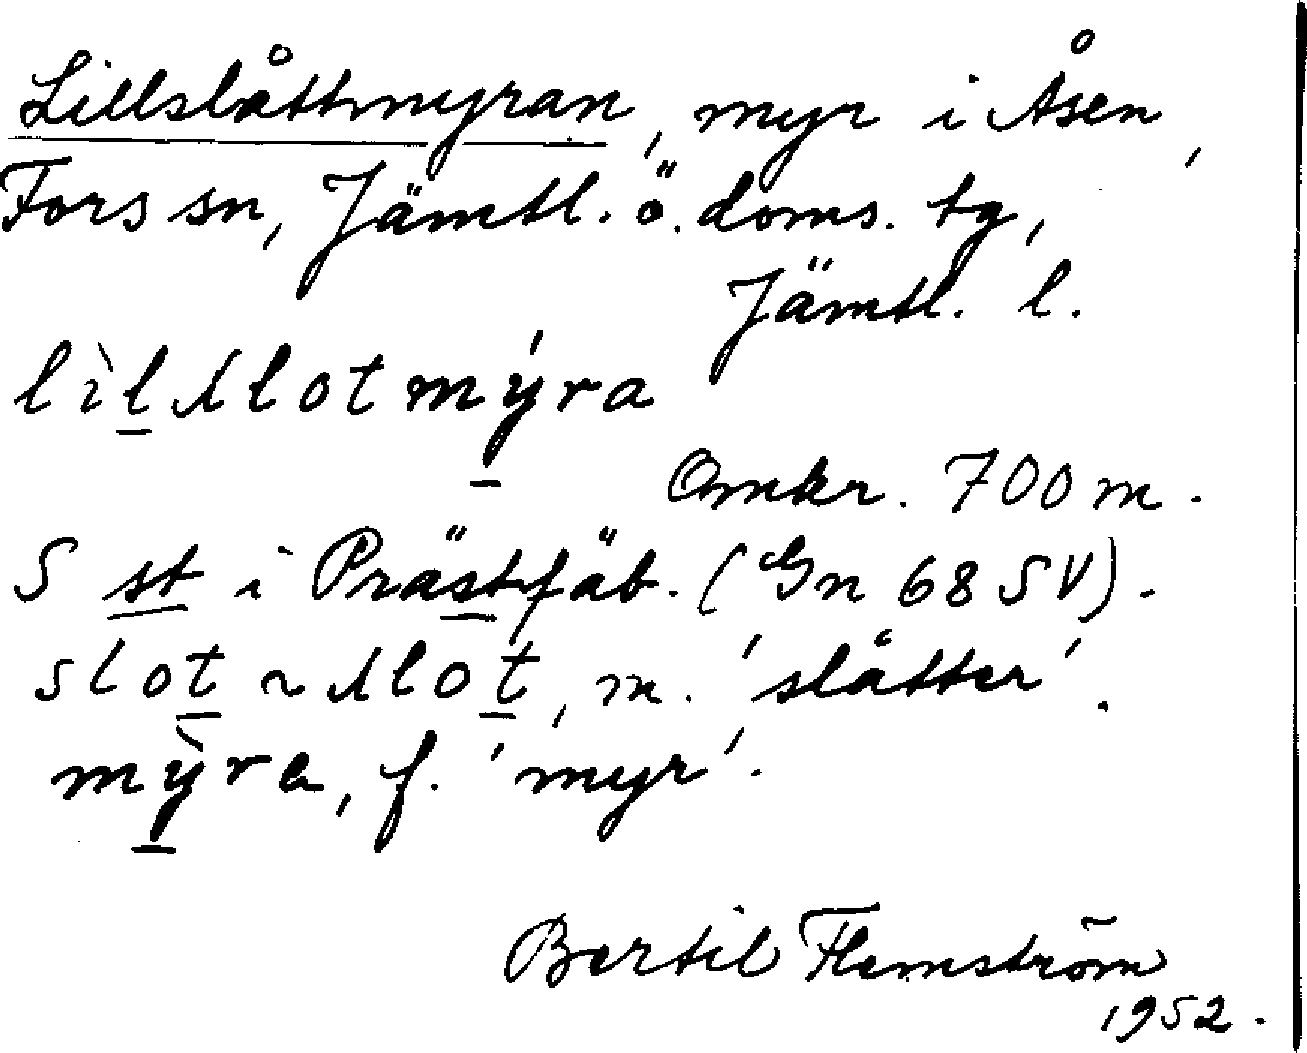 Lillslåttmyran, myr i Åsen,
Fors sn, Jämtl. ö. doms. tg,
Jämtl. l.
lìlslotmýra
Omkr. 700 m.
S st i Prästfäb. (Gn 68 SV).
slot ~ slot, m. 'slåtter'.
mỳra, f. 'myr'.
Bertil Flemström
1952.